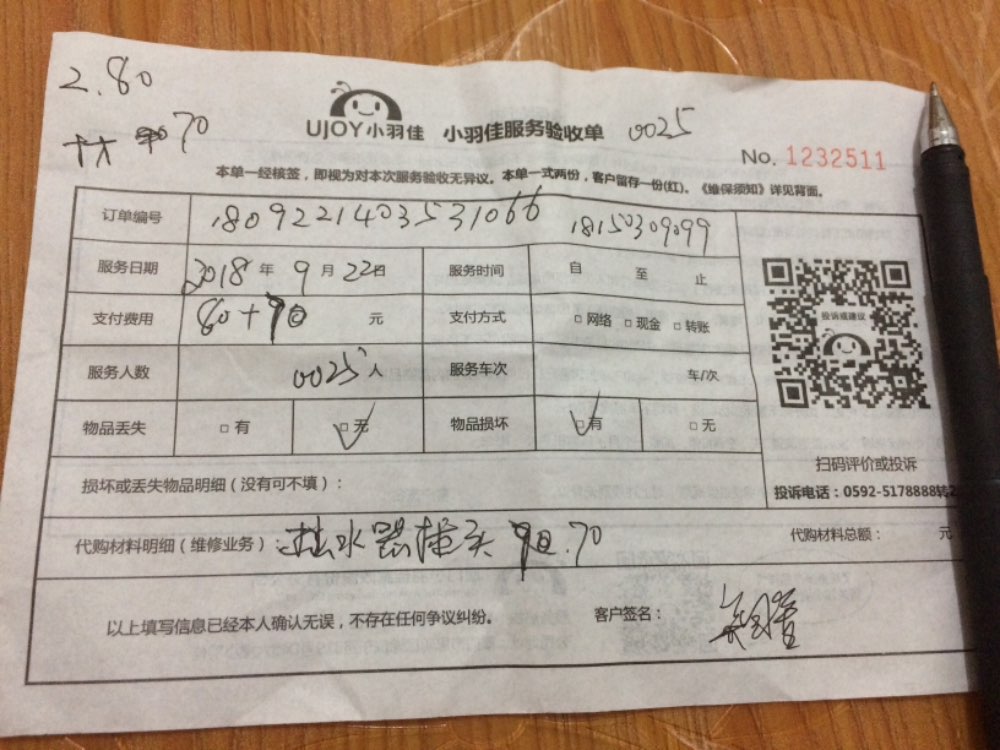 2.80
70
UJOY小羽佳 小羽佳服务验收单 0025
No. 1232511
本单一经核签，即视为对本次服务验收无异议。本单一式两份，客户留存一份(红)。《维保须知》详见背面。
订单编号 18092214035531066 18150309099
服务日期 2018年9月22日 服务时间 自 至 止
支付费用 80+70 元 支付方式 □网络 □现金 □转账
投诉或建议
服务人数 0025 人 服务车次 车/次
物品丢失 □有 □无 物品损坏 □有 □无
扫码评价或投诉
损坏或丢失物品明细（没有可不填）：
投诉电话：0592-5178888转2
代购材料明细（维修业务）： 热水器接头 70 代购材料总额： 元
以上填写信息已经本人确认无误，不存在任何争议纠纷。 客户签名：